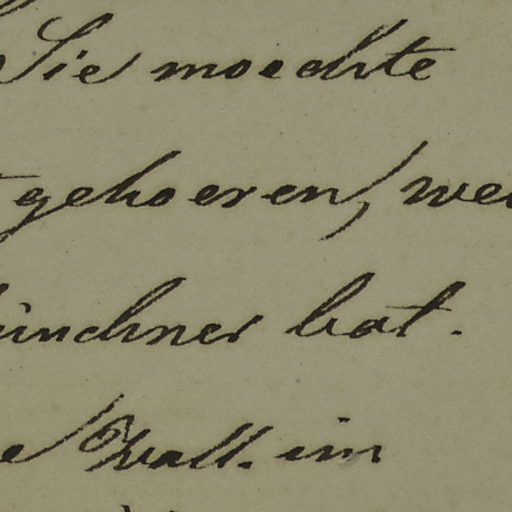 Sie moechte
gehoeren, wei
ünchner bat.
Wall. im